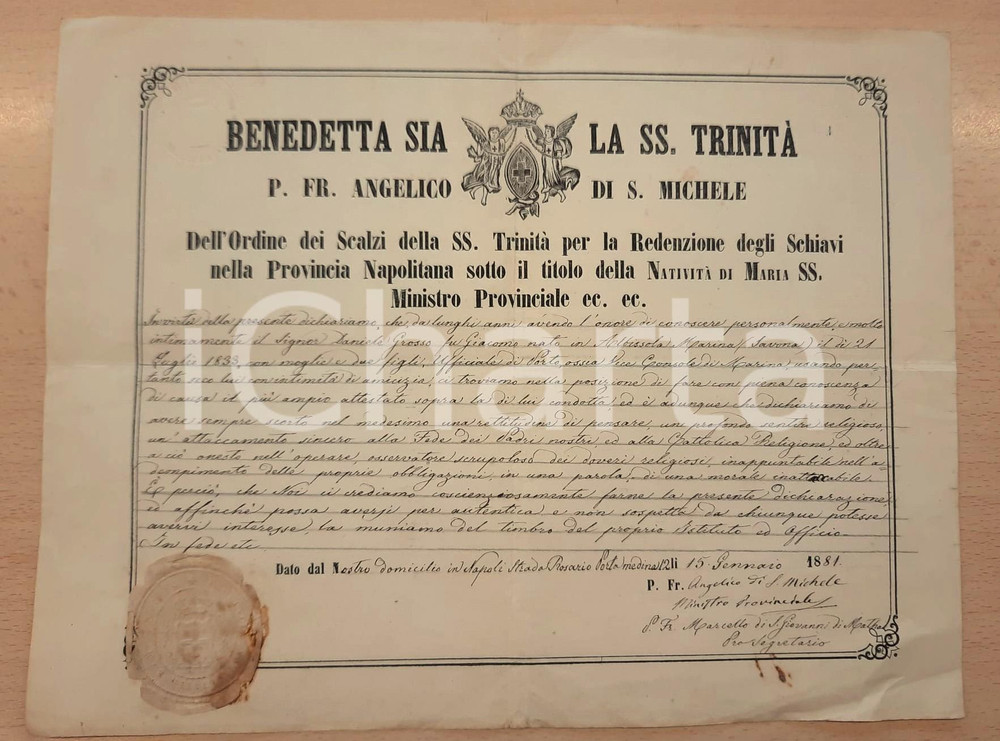 BENEDETTA SIA LA SS. TRINITÀ
P. FR. ANGELICO DI S. MICHELE
Dell'Ordine dei Scalzi della SS. Trinità per la Redenzione degli Schiavi
nella Provincia Napolitana sotto il titolo della NATIVITÀ DI MARIA SS.
Ministro Provinciale ec. ec.
In virtù della presente dichiariamo, che, da lunghi anni avendo l'onore di conoscere personalmente, e molto
intimamente il Signor Daniele Grosso fu Giacomo nato in Albissola Marina (Savona) il dì 21
Luglio 1833, con moglie e due figli, Ufficiale di Porto, ossia Vice Console di Marina, usando per,
tanto seco lui con intimità di amicizia, ci troviamo nella posizione di fare con piena conoscenza
di causa il più ampio attestato sopra la di lui condotta, ed è adunque che dichiariamo di
avere sempre scorto nel medesimo una rettitudine di pensare, un profondo sentire religioso,
un'attaccamento sincero alla Fede dei Padri nostri, ed alla Cattolica Religione, ed oltre
a ciò onesto nell'operare, osservatore scrupoloso dei doveri religiosi, inappuntabile nell'a,
dempimento delle proprie obbligazioni, in una parola, di una morale inattacabile.
E perciò, che Noi ci crediamo coscienziosamente farne la presente dichiarazione,
ed affinchè possa aversi per autentica e non sospetta da chiunque potesse
avervi interesse, la muniamo del timbro del proprio Istituto ed Officio.
In fede etc
Dato dal Nostro domicilio in Napoli Strada Rosario Porta medina 12 li 15 Gennaro 1881.
P. Fr. Angelico di S. Michele
Ministro Provinciale
P. Fr. Marcello di S. Giovanni di Matha
Pro Segretario
iCharta